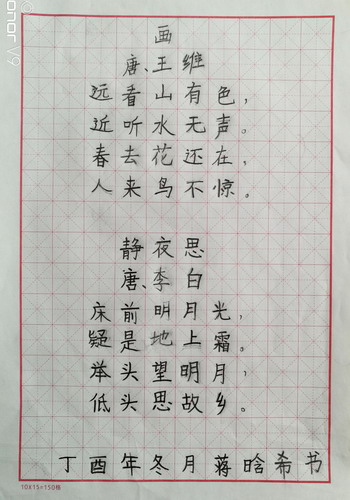 honor V9
画
唐、王维
远看山有色，
近听水无声。
春去花还在，
人来鸟不惊。
静夜思
唐、李白
床前明月光，
疑是地上霜。
举头望明月，
低头思故乡。
丁酉年冬月蒋晗希书
10X15=150格